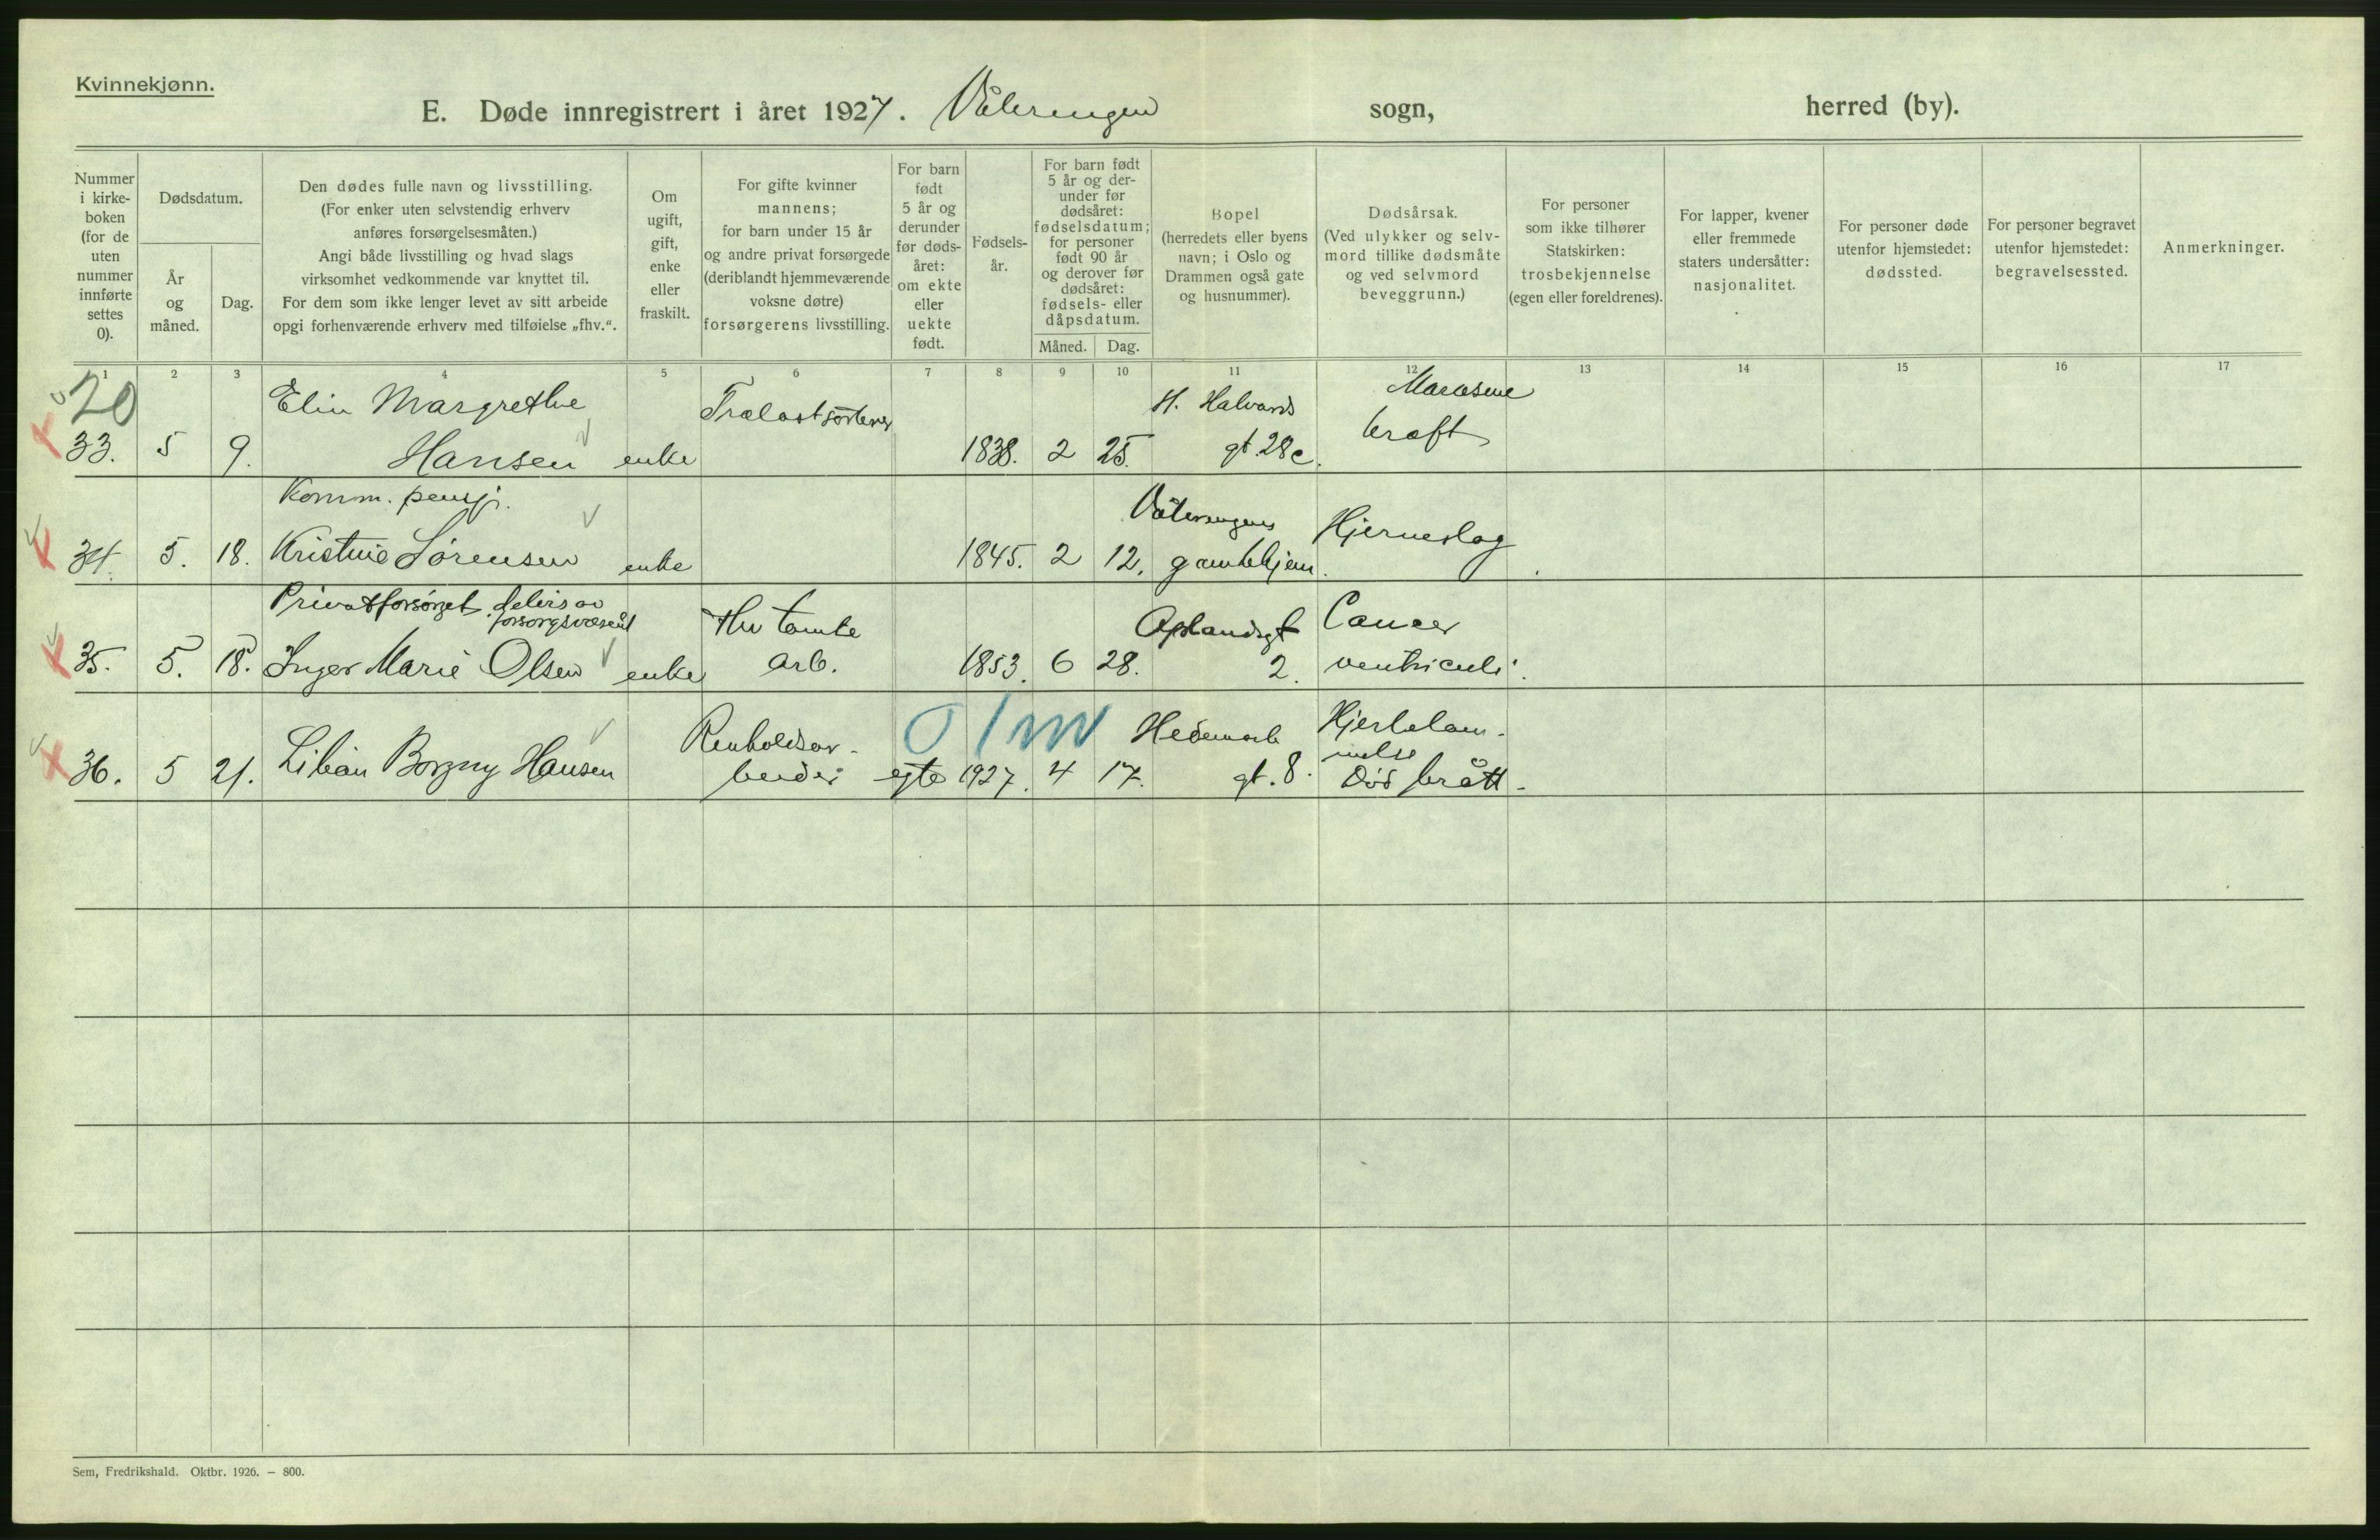 Kvinnekjønn.
E. Døde innregistrert i året 1927. Vålerengen sogn, herred (by).
Nummer
i kirke-
boken
(for de
uten
nummer
innførte
settes
0).
Dødsdatum.
År
og
måned.
Dag.
Den dødes fulle navn og livsstilling.
(For enker uten selvstendig erhverv
anføres forsørgelsesmåten.)
Angi både livsstilling og hvad slags
virksomhet vedkommende var knyttet til.
For dem som ikke lenger levet av sitt arbeide
opgi forhenværende erhverv med tilføielse „fhv.“.
Om
ugift,
gift,
enke
eller
fraskilt.
For gifte kvinner
mannens;
for barn under 15 år
og andre privat forsørgede
(deriblandt hjemmeværende
voksne døtre)
forsørgerens livsstilling.
For barn
født
5 år og
derunder
før døds-
året:
om ekte
eller
uekte
født.
Fødsels-
år.
For barn født
5 år og der-
under før
dødsåret:
fødselsdatum;
for personer
født 90 år
og derover før
dødsåret:
fødsels- eller
dåpsdatum.
Måned. Dag.
Bopel
(herredets eller byens
navn; i Oslo og
Drammen også gate
og husnummer).
Dødsårsak.
(Ved ulykker og selv-
mord tillike dødsmåte
og ved selvmord
beveggrunn.)
For personer
som ikke tilhører
Statskirken:
trosbekjennelse
(egen eller foreldrenes).
For lapper, kvener
eller fremmede
staters undersåtter:
nasjonalitet.
For personer døde
utenfor hjemstedet:
dødssted.
For personer begravet
utenfor hjemstedet:
begravelsessted.
Anmerkninger.
1 2 3 4 5 6 7 8 9 10 11 12 13 14 15 16 17
20
Elin Margrethe Trælastsorterer H. Halvards
33. 5 9. Hansen enke 1838. 2 25. gt. 28c.
Komm. pensj.
Vålerengens Hjerneslag
34. 5. 18. Kristine Sørensen enke 1845. 2 12. gamlehjem.
Privatforsørget delvis av
forsorgsvæsenet
fhv tomte Oplandsgt Cancer
35. 5. 18. Inger Marie Olsen enke arb. 1853. 6 28. 2. ventriculi.
0 1 m
Renholdsar- Hedemark Hjertelam-
melse
36. 5 21. Lilian Borgny Hansen beider egte 1927. 4 17. gt. 8. Død brått.
Sem, Fredrikshald. Oktbr. 1926. – 800.